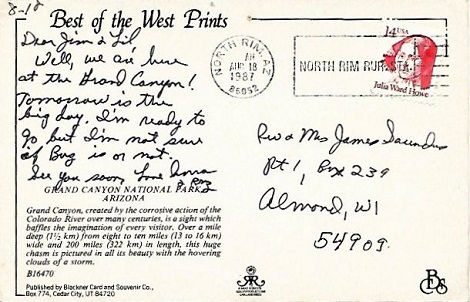 8-18
Best of the West Prints
Dear Jim & Lil
Well, we are here
at the Grand Canyon!
Tomorrow is the
big day. I'm ready to
go but I'm not sure
if Bug is or not.
See you soon, Love Donna
& Bug
GRAND CANYON NATIONAL PARK
ARIZONA
Grand Canyon, created by the corrosive action of the
Colorado River over many centuries, is a sight which
baffles the imagination of every visitor. Over a mile
deep (1½ km) from eight to ten miles (13 to 16 km)
wide and 200 miles (322 km) in length, this huge
chasm is pictured in all its beauty with the hovering
clouds of a storm.
B16470
Published by Blackner Card and Souvenir Co.,
Box 774, Cedar City, UT 84720
NORTH RIM, AZ
AUG 18
1987
86052
NORTH RIM RUR. STA.
14 USA
Julia Ward Howe
Rev & Mrs James Saunders
Rt 1, Box 239
Almond, WI
54909